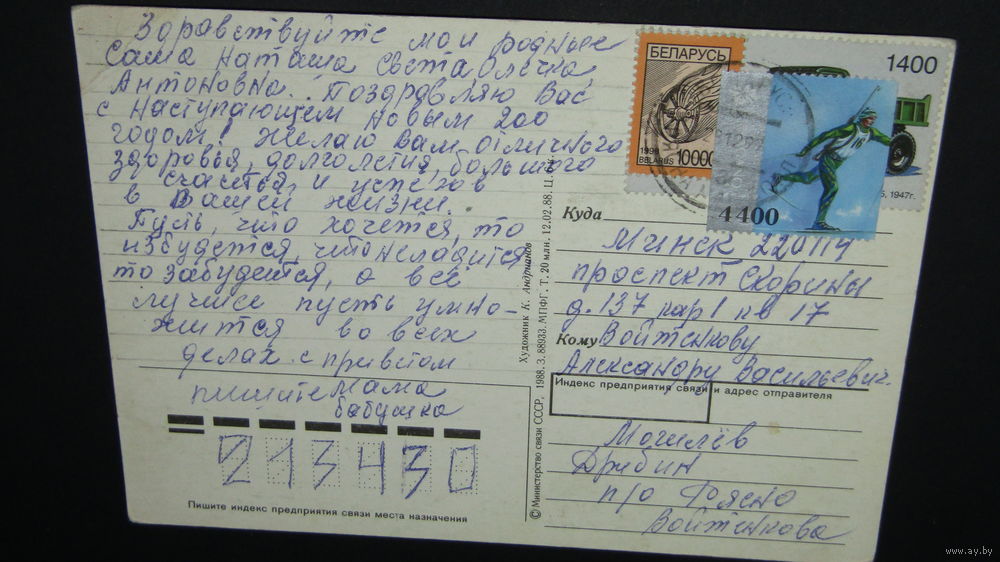 Здравствуйте мои родные
Саша Наташа Света Олечка
Антоновна. Поздравляю Вас
с наступающем новым 200
годом! Желаю Вам отличного
здоровья, долголетия, большого
счастья и успехов
в Вашей жизни.
Пусть, что хочется, то
избудется, что неладится
то забудится, а всё
лучшее пусть умно-
жится во всех
делах. с приветом
пишите мама
бабушка
213430
Пишите индекс предприятия связи места назначения
© Министерство связи СССР, 1988. З. 88933. МПФГ. Т. 20 млн. 12.02.88. Ц.
Художник К. Андрианов
БЕЛАРУСЬ
1998
BELARUS 10000
4400
1400
1947г.
Куда
Минск 220114
проспект Скорины
д. 137 кор 1 кв 17
Кому Войтенкову
Александру Васильевич.
Индекс предприятия связи и адрес отправителя
Могилёв
Дрибин
п/о Рясно
Войтенкова
www.ay.by